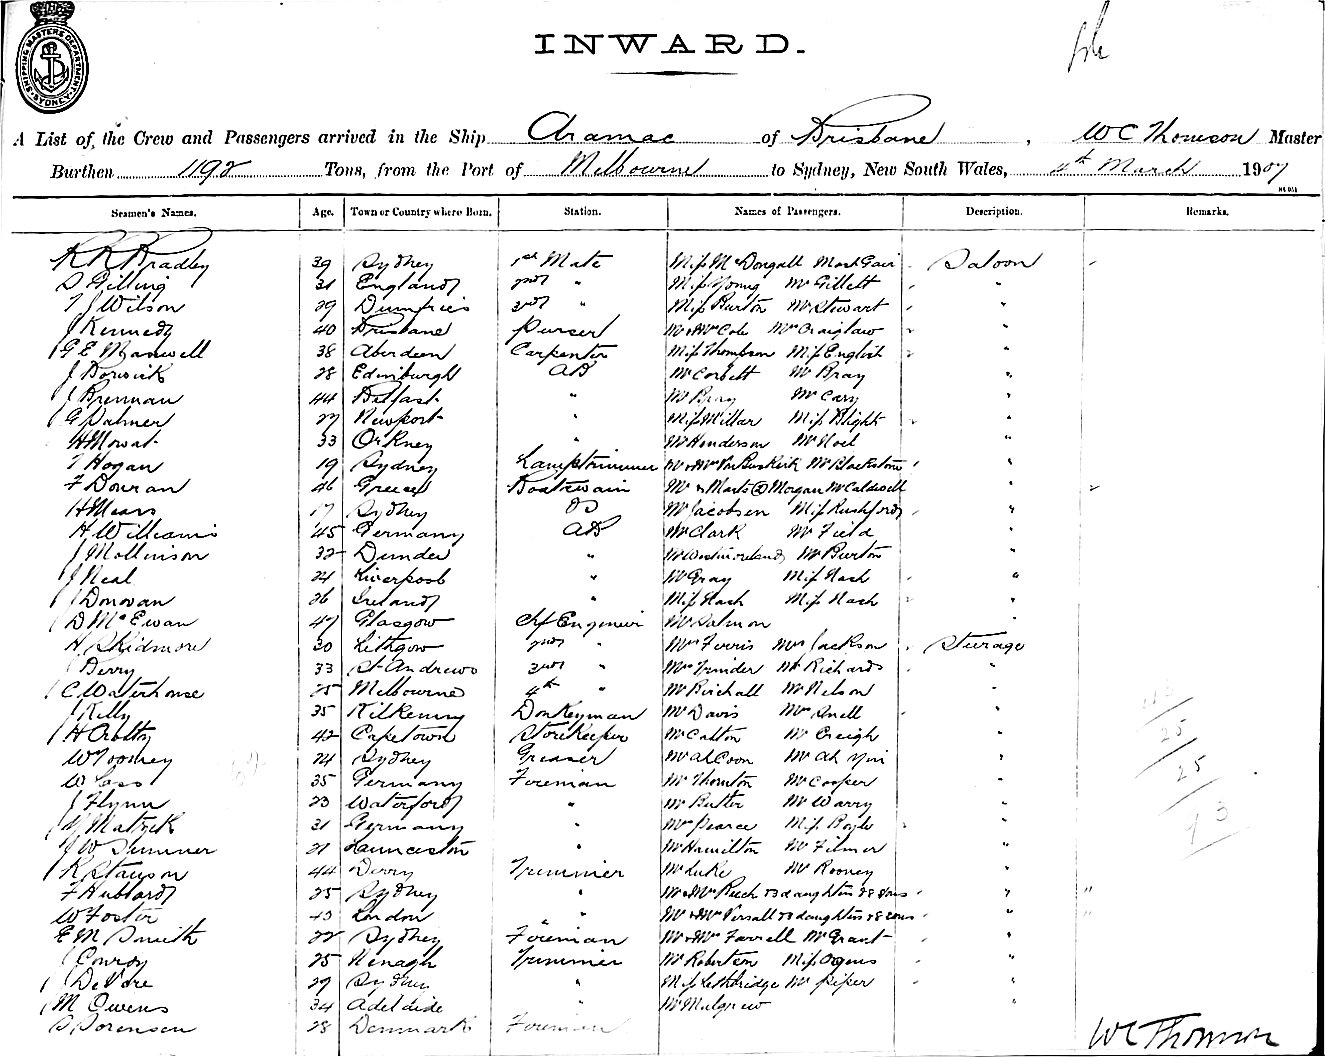 SHIPPING MASTERS DEPARTMENT SYDNEY
INWARD.
A List of the Crew and Passengers arrived in the Ship Aramac of Brisbane, W C Thomson Master
Burthen 1192 Tons, from the Port of Melbourne to Sydney, New South Wales, 4th March 1907
Seamen's Names. Age. Town or Country where Born. Station. Names of Passengers. Description. Remarks.
R R Bradley 39 Sydney 1st Mate Miss McDougall Mast Gair Saloon
S Gilling 31 England 2nd " Miss Young Mr Gillett "
T J Wilson 29 Dumfries 3rd " Miss Burton Mr Stewart "
J Kennedy 40 Brisbane Purser Mr & Mrs Cole Mrs Craiglaw "
G E Maxwell 38 Aberdeen Carpenter Miss Thompson Miss English "
J Borwick 28 Edinburgh AB Mr Corbett Mr Bray "
J Brennan 44 Belfast " Mr Bray Mr Cary "
G Palmer 27 Newport " Miss Millar Miss Blight "
H Mowat 33 Orkney " Mr Henderson Mr Noel "
T Hogan 19 Sydney Lamptrimmer Mr & Mrs Van Buskirk Mr Blackstone "
F Douran 46 Greece Boatswain Mr & Mast Morgan Mr Caldwell "
H Mears 17 Sydney OS Mr Jacobsen Miss Rushford "
H Williams 45 Germany AB Mr Clark Mr Field "
J Mollinson 32 Dundee " Mr Westmoreland Mr Burton "
J Neal 24 Liverpool " Mr Gray Miss Nash "
J Donovan 26 Ireland " Miss Nash Miss Nash "
D McEwan 47 Glasgow Chf Engineer Mr Salmon
H Skidmore 30 Lithgow 2nd " Mrs Ferris Mrs Jackson Steerage
J Berry 33 St Andrews 3rd " Mrs Trinder Mr Richards "
C Waterhouse 25 Melbourne 4th " Mr Birchall Mr Nelson "
J Kelly 35 Kilkenny Donkeyman Mr Davis Mr Snell "
H Crolty 42 Capetown Storekeeper Mr Calton Mr Creigh "
W Toomey 24 Sydney Greaser Mr Ah Coon Mr Ah Yin "
W Cass 35 Germany Foreman Mr Thornton Mr Cooper "
J Flynn 23 Waterford " Mr Butler Mr Warry "
Matzek 31 Germany " Mrs Pearce Miss Boyle "
J W Summer 21 Launceston " Mr Hamilton Mr Filmer "
R Stawson 44 Derry Trimmer Mr Luke Mr Rooney "
F Hubbard 25 Sydney " Mr & Mrs Reech & 3 daughters & 2 sons " "
W Foster 43 London " " Mr & Mrs Versall & 3 daughters & 2 sons " "
E M Smith 22 Sydney Foreman Mr & Mrs Farrell Mr Grant "
J Conroy 25 Nenagh Trimmer Mr Robertson Miss Owens "
J DeVere 27 Sydney " Miss Lethbridge Mr Piper "
M Owens 34 Adelaide " Mr Mulgrew "
S Sorensen 28 Denmark Foreman
25
25
W C Thomson